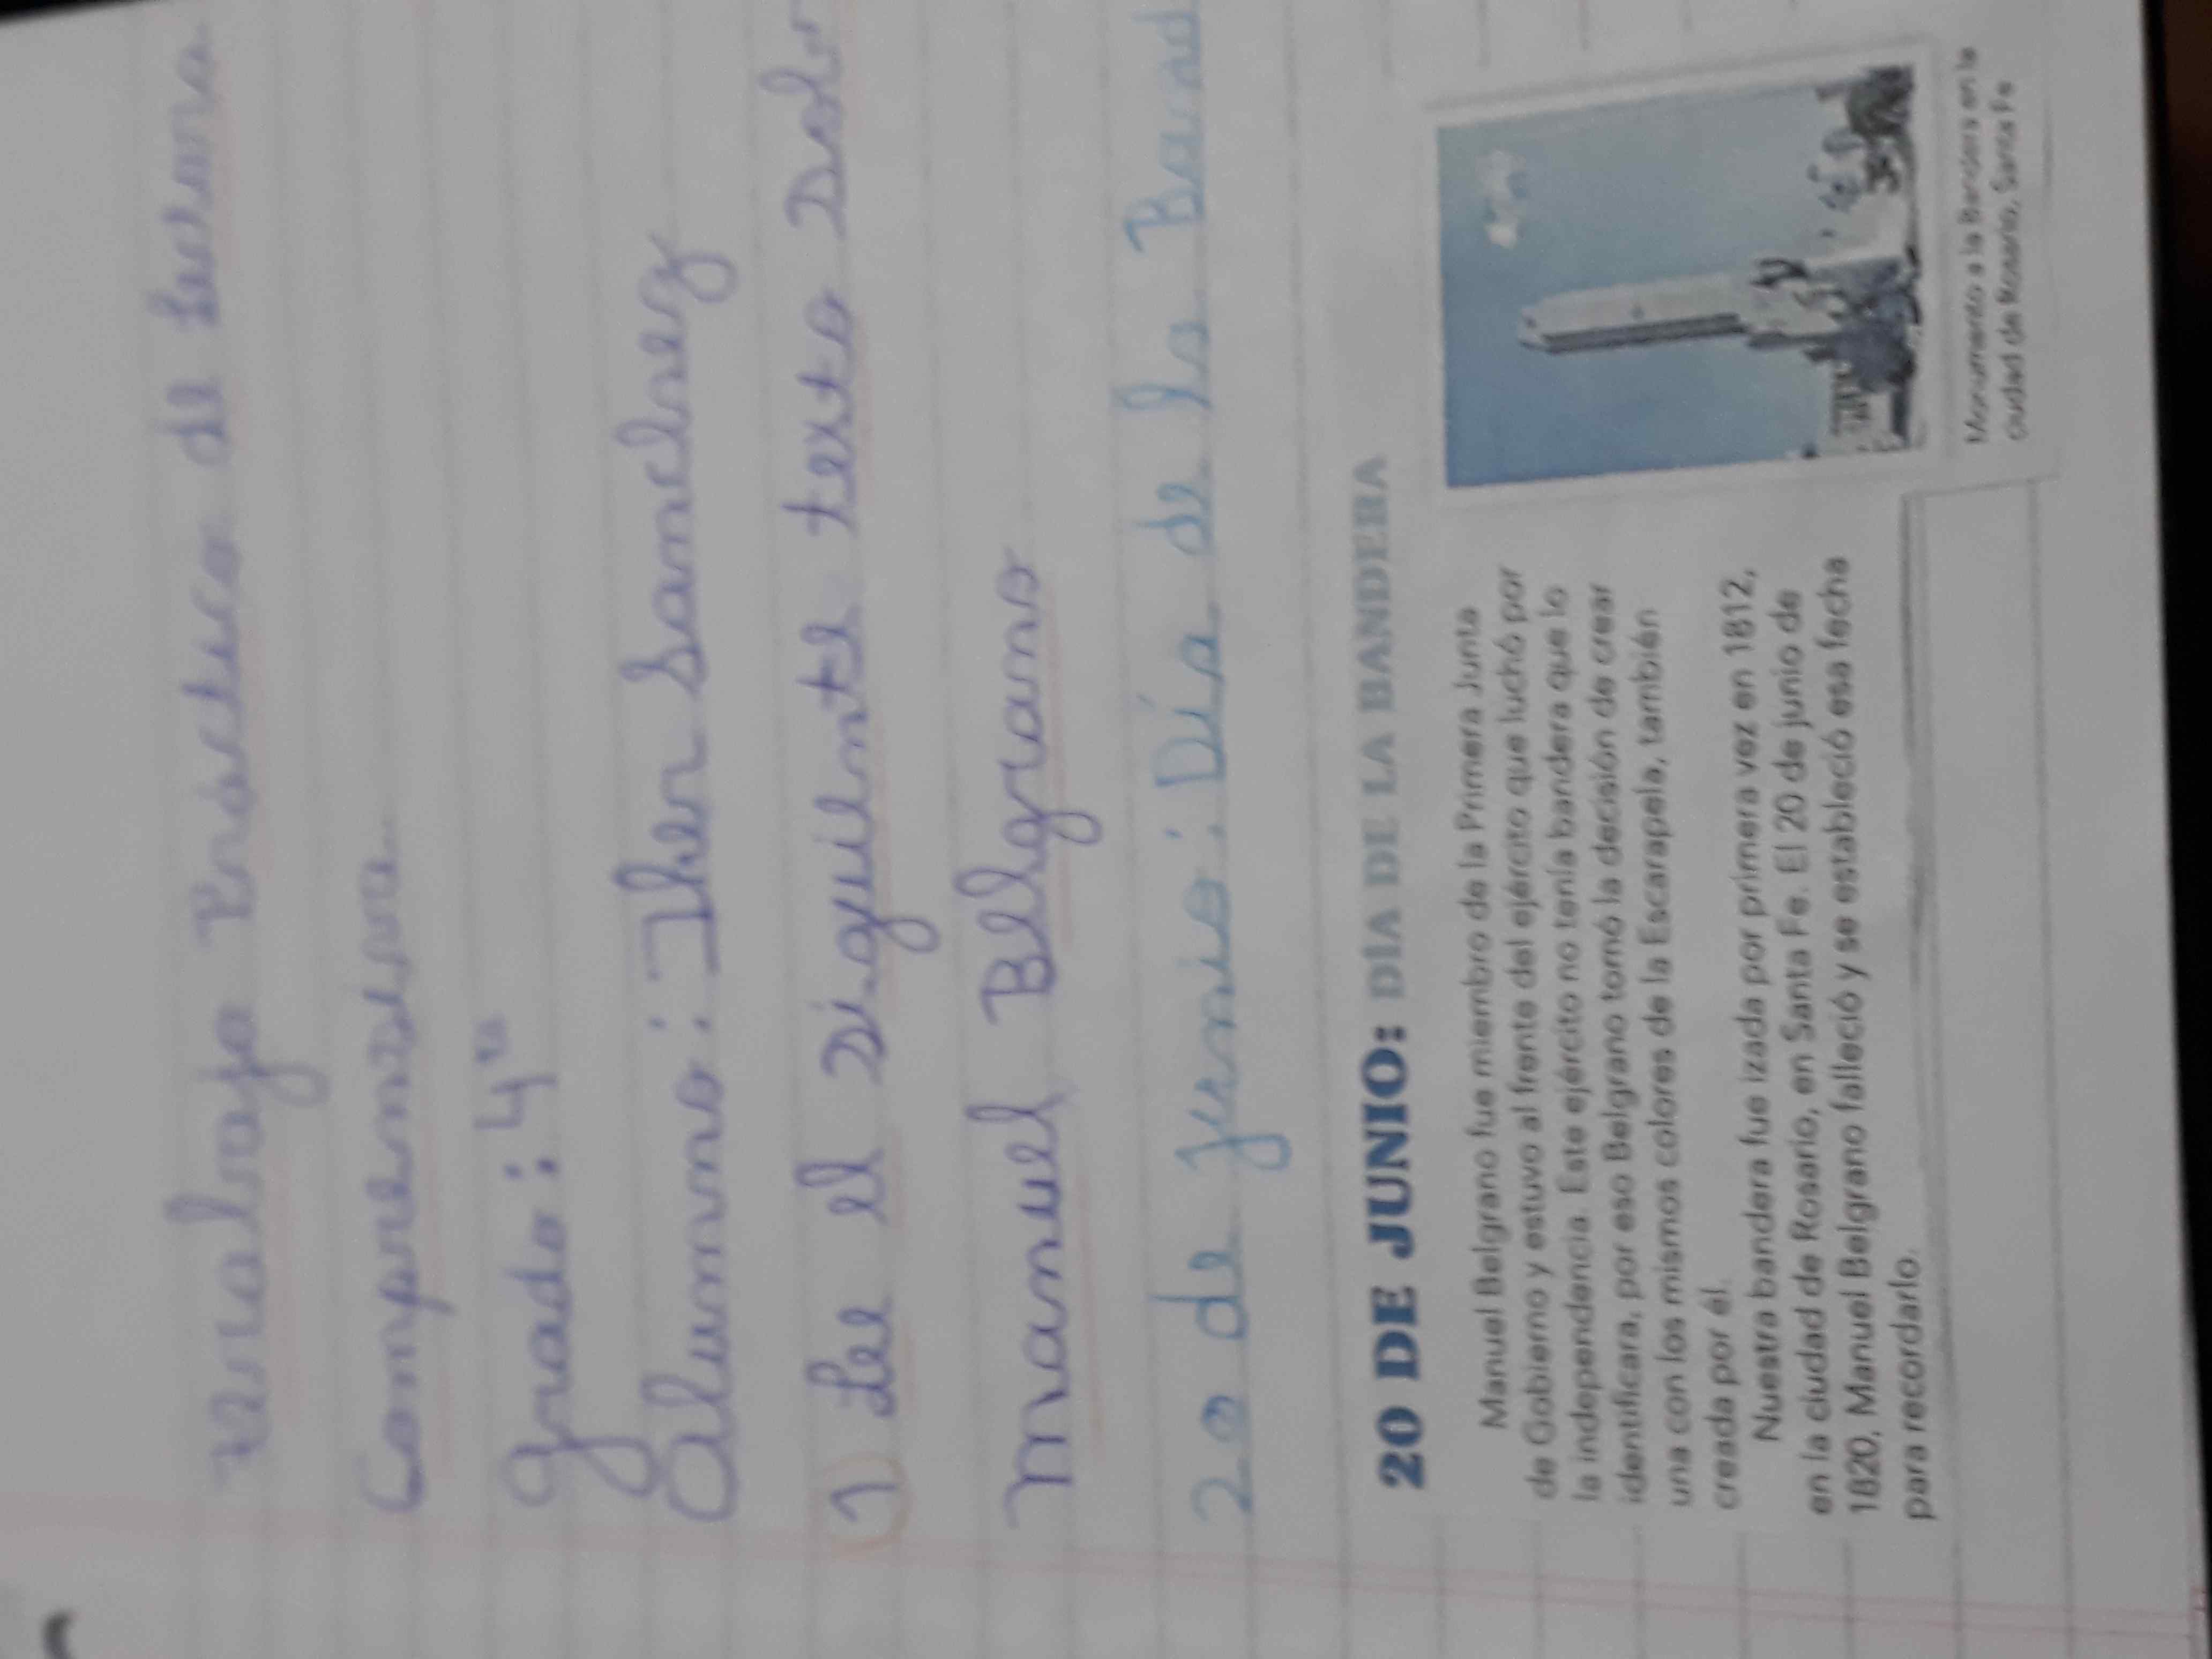 Trabajo Práctico de Lectura
Comprensiva
Grado: 4to
Alumno: Iker Sanchez
1) Lee el siguiente texto Sobr
Manuel Belgrano
20 de junio: Día de la Band
20 DE JUNIO: DÍA DE LA BANDERA
Manuel Belgrano fue miembro de la Primera Junta
de Gobierno y estuvo al frente del ejército que luchó por
la independencia. Este ejército no tenía bandera que lo
identificara, por eso Belgrano tomó la decisión de crear
una con los mismos colores de la Escarapela, también
creada por él.
Nuestra bandera fue izada por primera vez en 1812,
en la ciudad de Rosario, en Santa Fe. El 20 de junio de
1820, Manuel Belgrano falleció y se estableció esa fecha
para recordarlo.
Monumento a la Bandera en la
ciudad de Rosario, Santa Fe